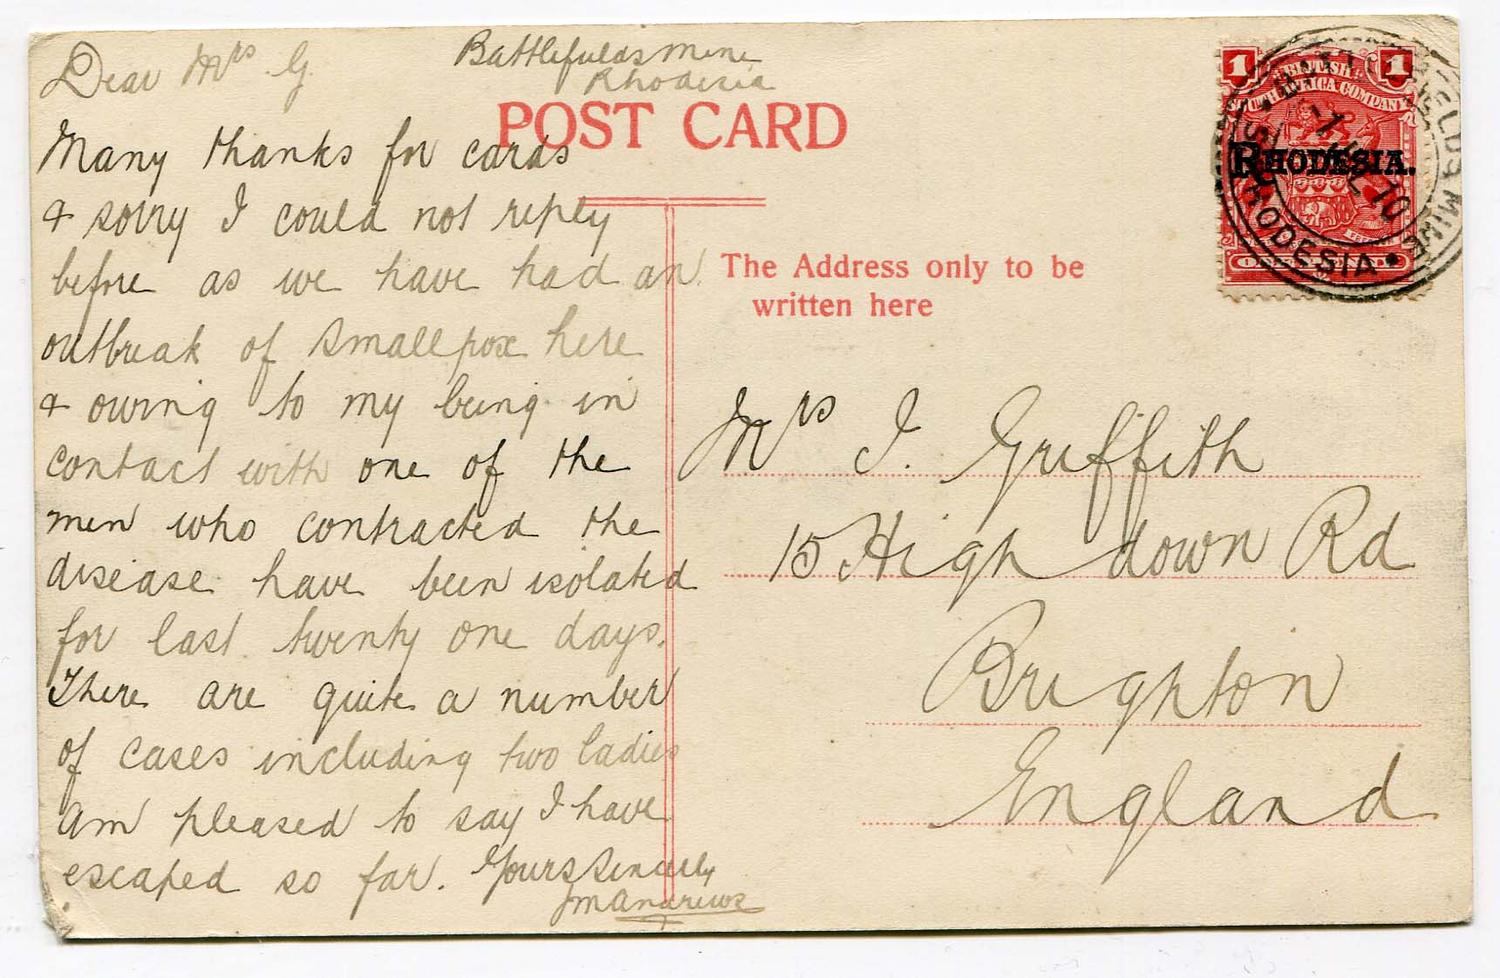 Battlefields Mine
Rhodesia
Dear Mrs G.
Many thanks for cards
& sorry I could not reply
before as we have had an
outbreak of smallpox here
& owing to my being in
contact with one of the
men who contracted the
disease have been isolated
for last twenty one days.
There are quite a number
of cases including two ladies
am pleased to say I have
escaped so far. Yours Sincerely
JM Andrews
POST CARD
The Address only to be
written here
Mrs J. Griffith
15 High down Rd
Brighton
England
1 1
BRITISH
SOUTH AFRICA COMPANY
RHODESIA.
ONE PENNY
BATTLEFIELDS MINE
JUL 10
S. RHODESIA